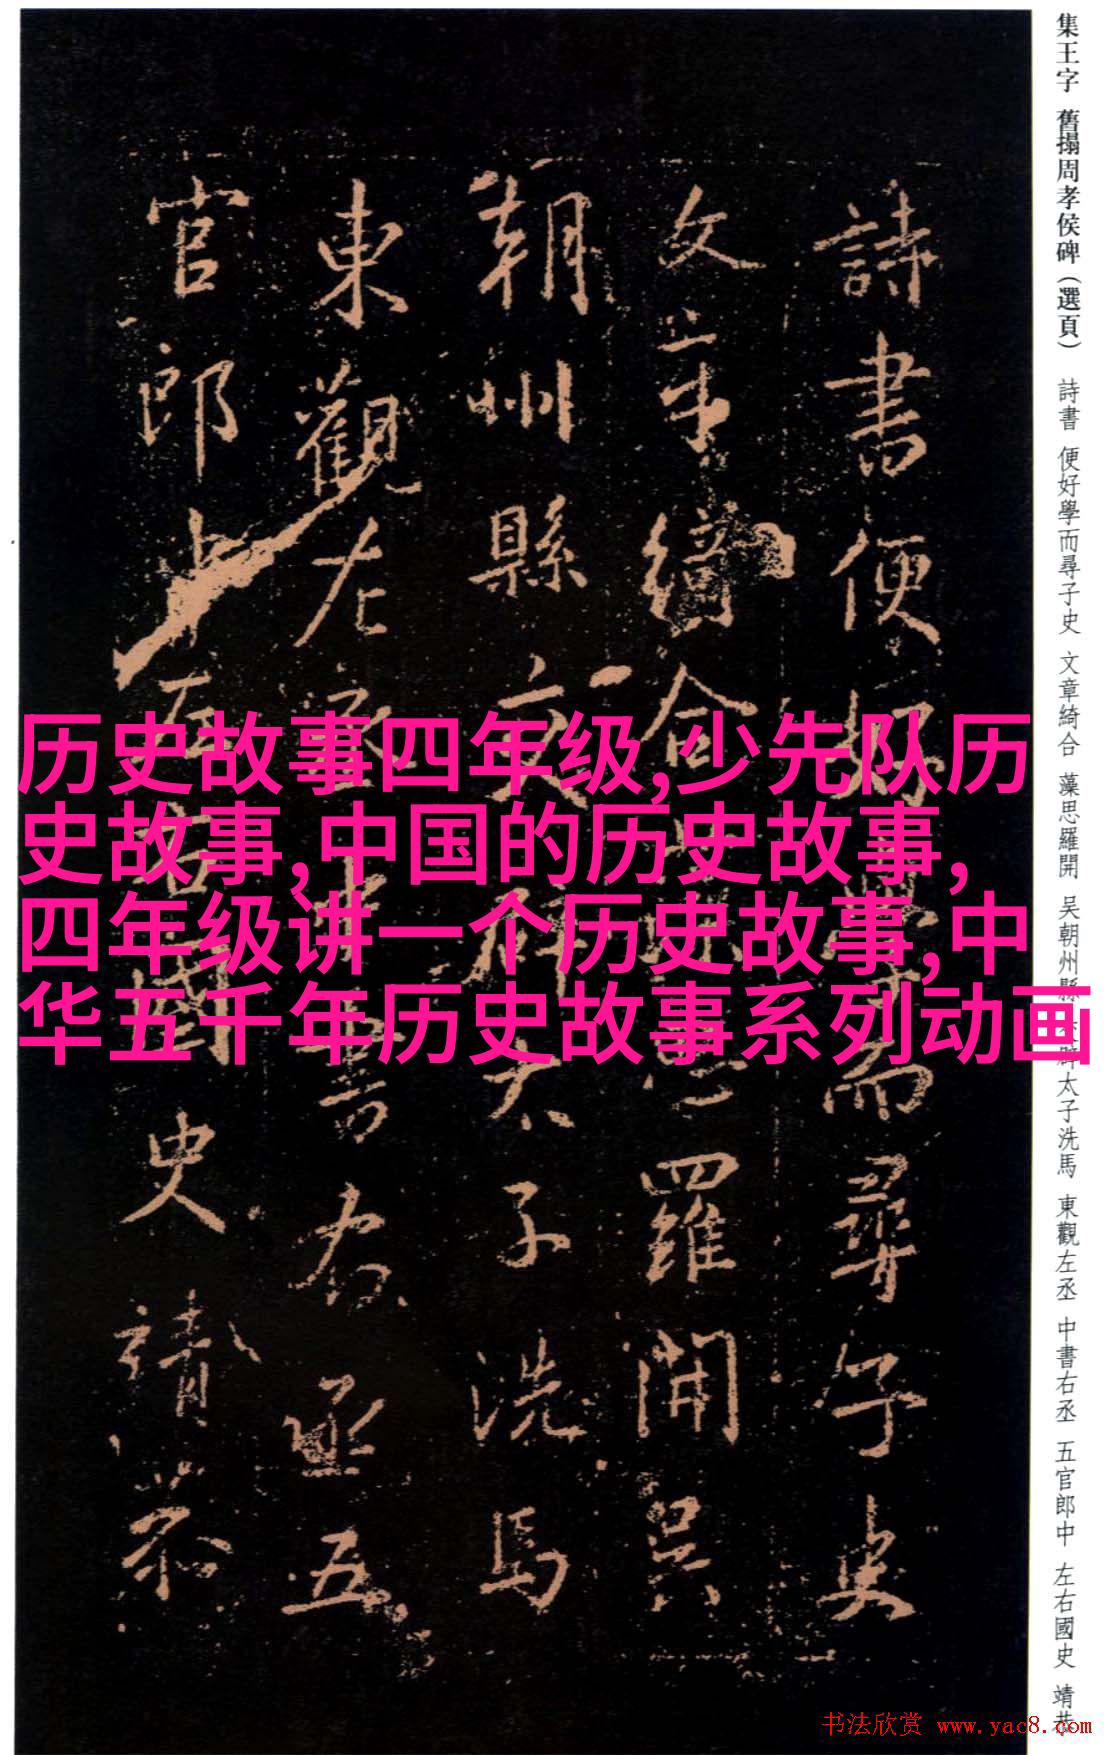 集王字 舊搨周孝侯碑(選頁) 詩書 便好學而尋子史 文章綺合 藻思羅開 吴朝州縣 太子洗馬 東觀左丞 中書右丞 五官郎中 左右國史 靖恭
詩書便好學而尋子史
文章綺合 羅開吴
朝州縣 太子洗馬
東觀左丞中書右丞五
官郎中左右國史靖恭
历史故事四年级,少先队历
史故事,中国的历史故事,
四年级讲一个历史故事,中
华五千年历史故事系列动画
书法欣赏 www.yac8.com